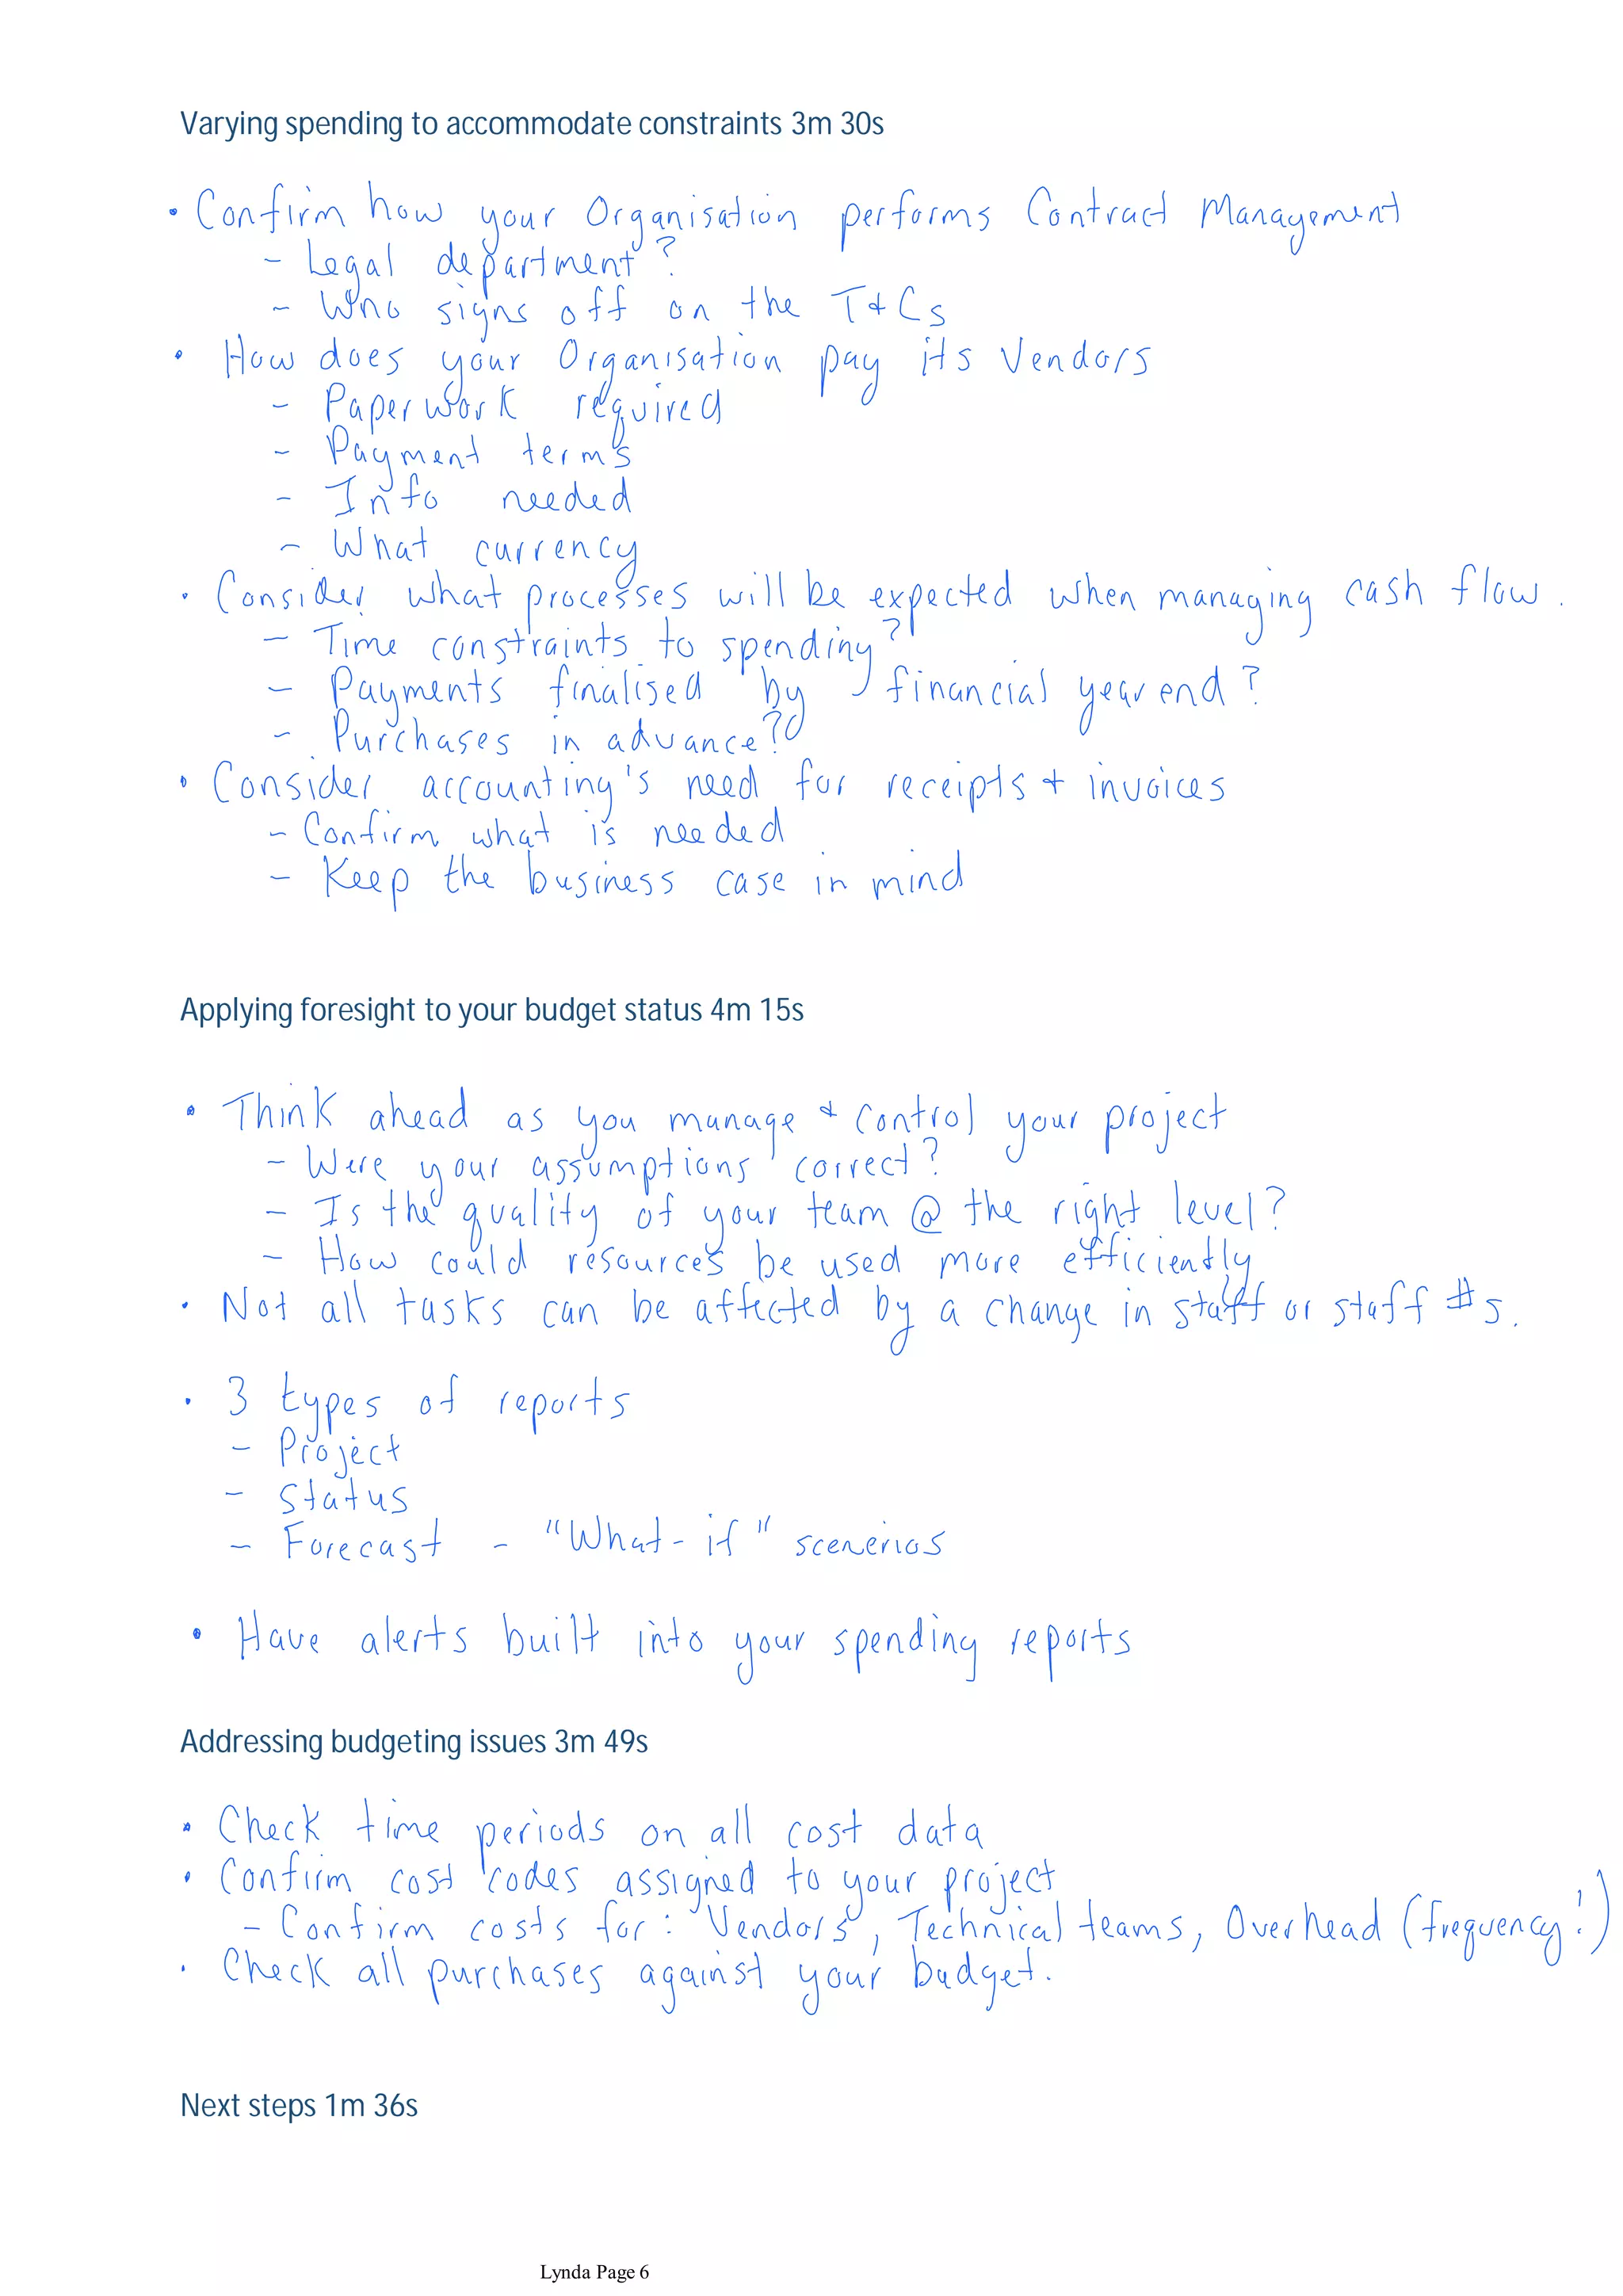 Varying spending to accommodate constraints 3m 30s
• Confirm how your Organisation performs Contract Management
- Legal department?
- Who signs off on the T+Cs
• How does your Organisation pay its Vendors
- Paperwork required
- Payment terms
- Info needed
- What currency
• Consider what processes will be expected when managing cash flow.
- Time constraints to spending?
- Payments finalised by financial year end?
- Purchases in advance?
• Consider accounting's need for receipts + invoices
- Confirm what is needed
- Keep the business case in mind
Applying foresight to your budget status 4m 15s
• Think ahead as you manage + control your project
- Were your assumptions correct?
- Is the quality of your team @ the right level?
- How could resources be used more efficiently
• Not all tasks can be affected by a change in staff or staff #s.
• 3 types of reports
- Project
- Status
- Forecast - "What-if" scenerios
• Have alerts built into your spending reports
Addressing budgeting issues 3m 49s
• Check time periods on all cost data
• Confirm cost codes assigned to your project
- Confirm costs for: Vendors, Technical teams, Overhead (frequency!)
• Check all purchases against your budget.
Next steps 1m 36s
Lynda Page 6